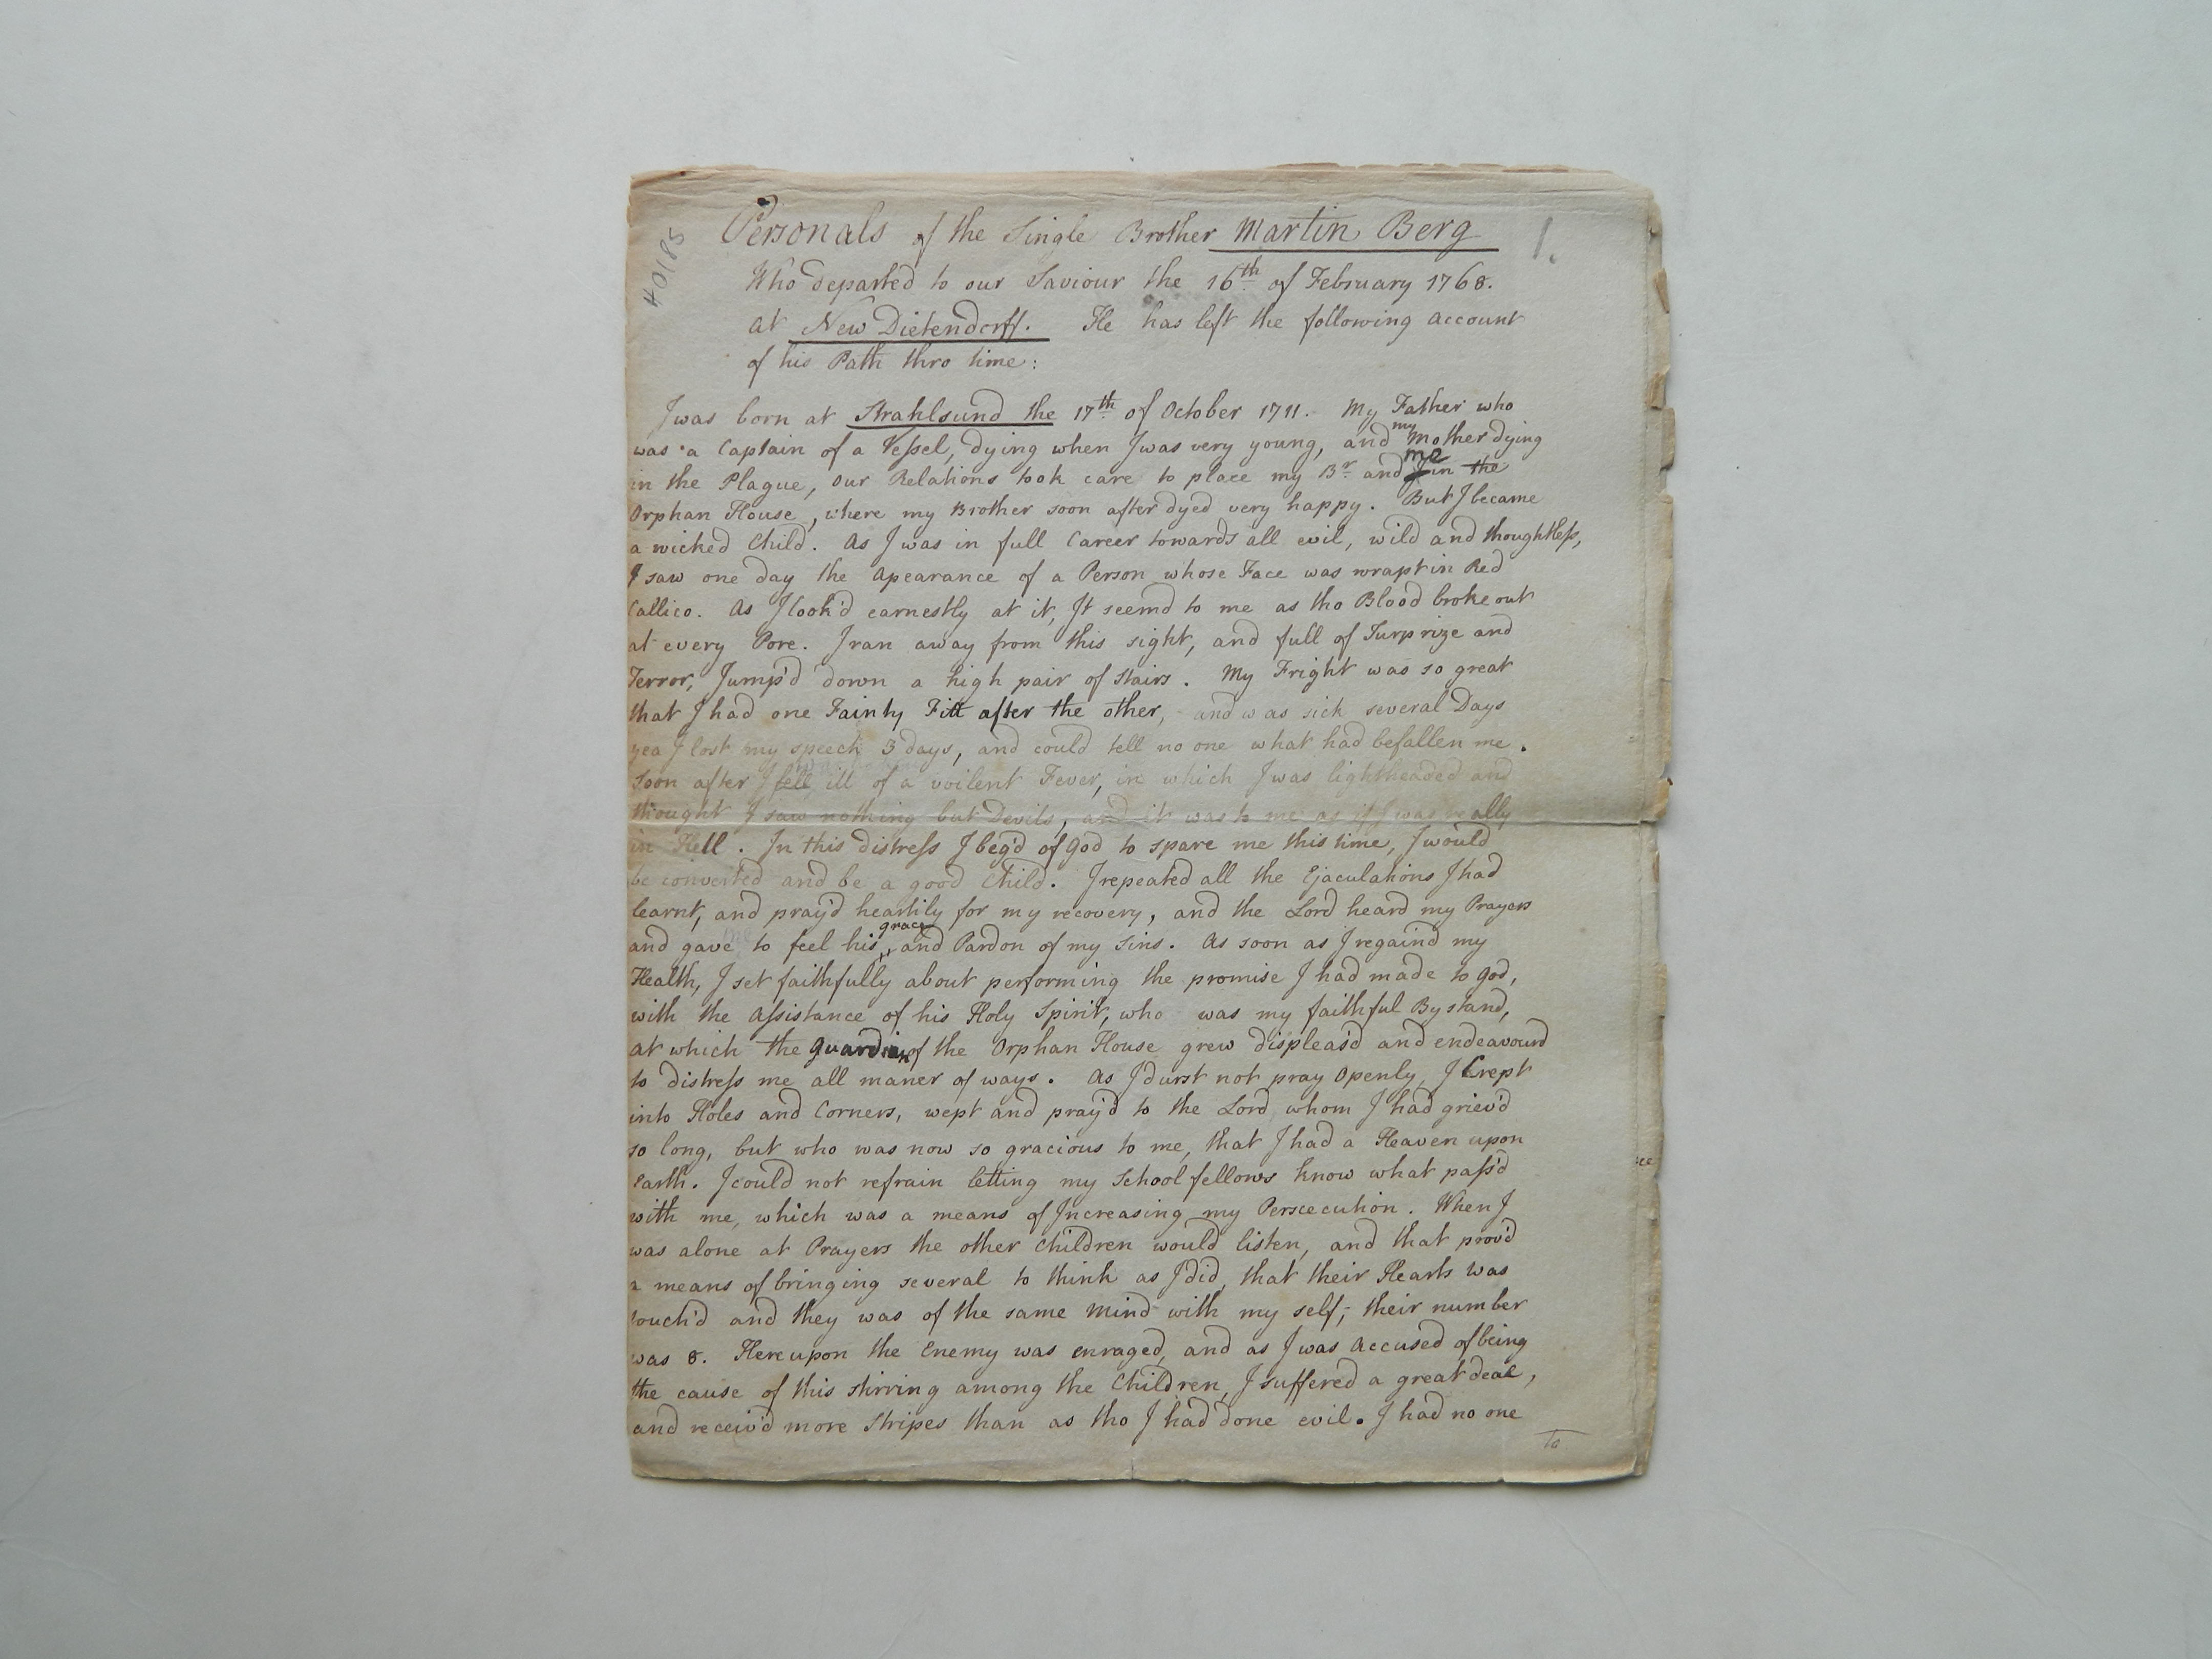 40185
1.
Personals of the Single Brother Martin Berg
Who departed to our Saviour the 16th of February 1768.
at New Dietendorff. He has left the following account
of his Path thro time:
I was born at Strahlsund the 17th of October 1711. My Father who
was a Captain of a Vessel, dying when I was very young, and my Mother dying
in the Plague, our Relations took care to place my Br and me I in the
Orphan House, where my Brother soon after dyed very happy. But I became
a wicked Child. As I was in full Career towards all evil, wild and thoughtless,
I saw one day the Apearance of a Person whose Face was wrapt in Red
Callico. As I look'd earnestly at it, It seemd to me as tho Blood broke out
at every Pore. I ran away from this sight, and full of Surprize and
Terror, Jump'd down a high pair of stairs. My Fright was so great
that I had one Fainty Fitt after the other, and was sick several Days
yea I lost my speech 3 days, and could tell no one what had befallen me.
Soon after I fell ill of a voilent Fever, in which I was lightheaded and
thought I saw nothing but Devils, and it was to me as if I was really
in Hell. In this distress I beg'd of God to spare me this time, I would
be converted and be a good Child. I repeated all the Ejaculations I had
learnt, and pray'd heartily for my recovery, and the Lord heard my Prayers
and gave me to feel his grace and Pardon of my Sins. As soon as I regain'd my
Health, I set faithfully about performing the promise I had made to God,
with the Assistance of his Holy Spirit, who was my faithful By stand,
at which the Guardian of the Orphan House grew displeas'd and endeavourd
to distress me all maner of ways. As I durst not pray Openly, I Crept
into Holes and Corners, wept and pray'd to the Lord whom I had griev'd
so long, but who was now so gracious to me, that I had a Heaven upon
Earth. I could not refrain letting my School fellows know what pass'd
with me, which was a means of Increasing my Perscecution. When I
was alone at Prayers the other Children would listen, and that prov'd
a means of bringing several to think as I did, that their Hearts was
touch'd and they was of the same Mind with my self; their number
was 8. Hereupon the Enemy was enraged, and as I was Accused of being
the cause of this stirring among the Children, I suffered a great deal,
and receiv'd more Stripes than as tho I had done evil. I had no one
to